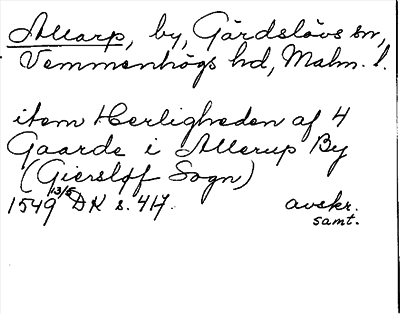 Allarp, by, Gärdslövs sn,
Vemmenhögs hd, Malm. l.
item Herligheden af 4
Gaarde i Allerup By
(Giersløf Sogn)
1549 13/5 DK s. 417. avskr.
samt.